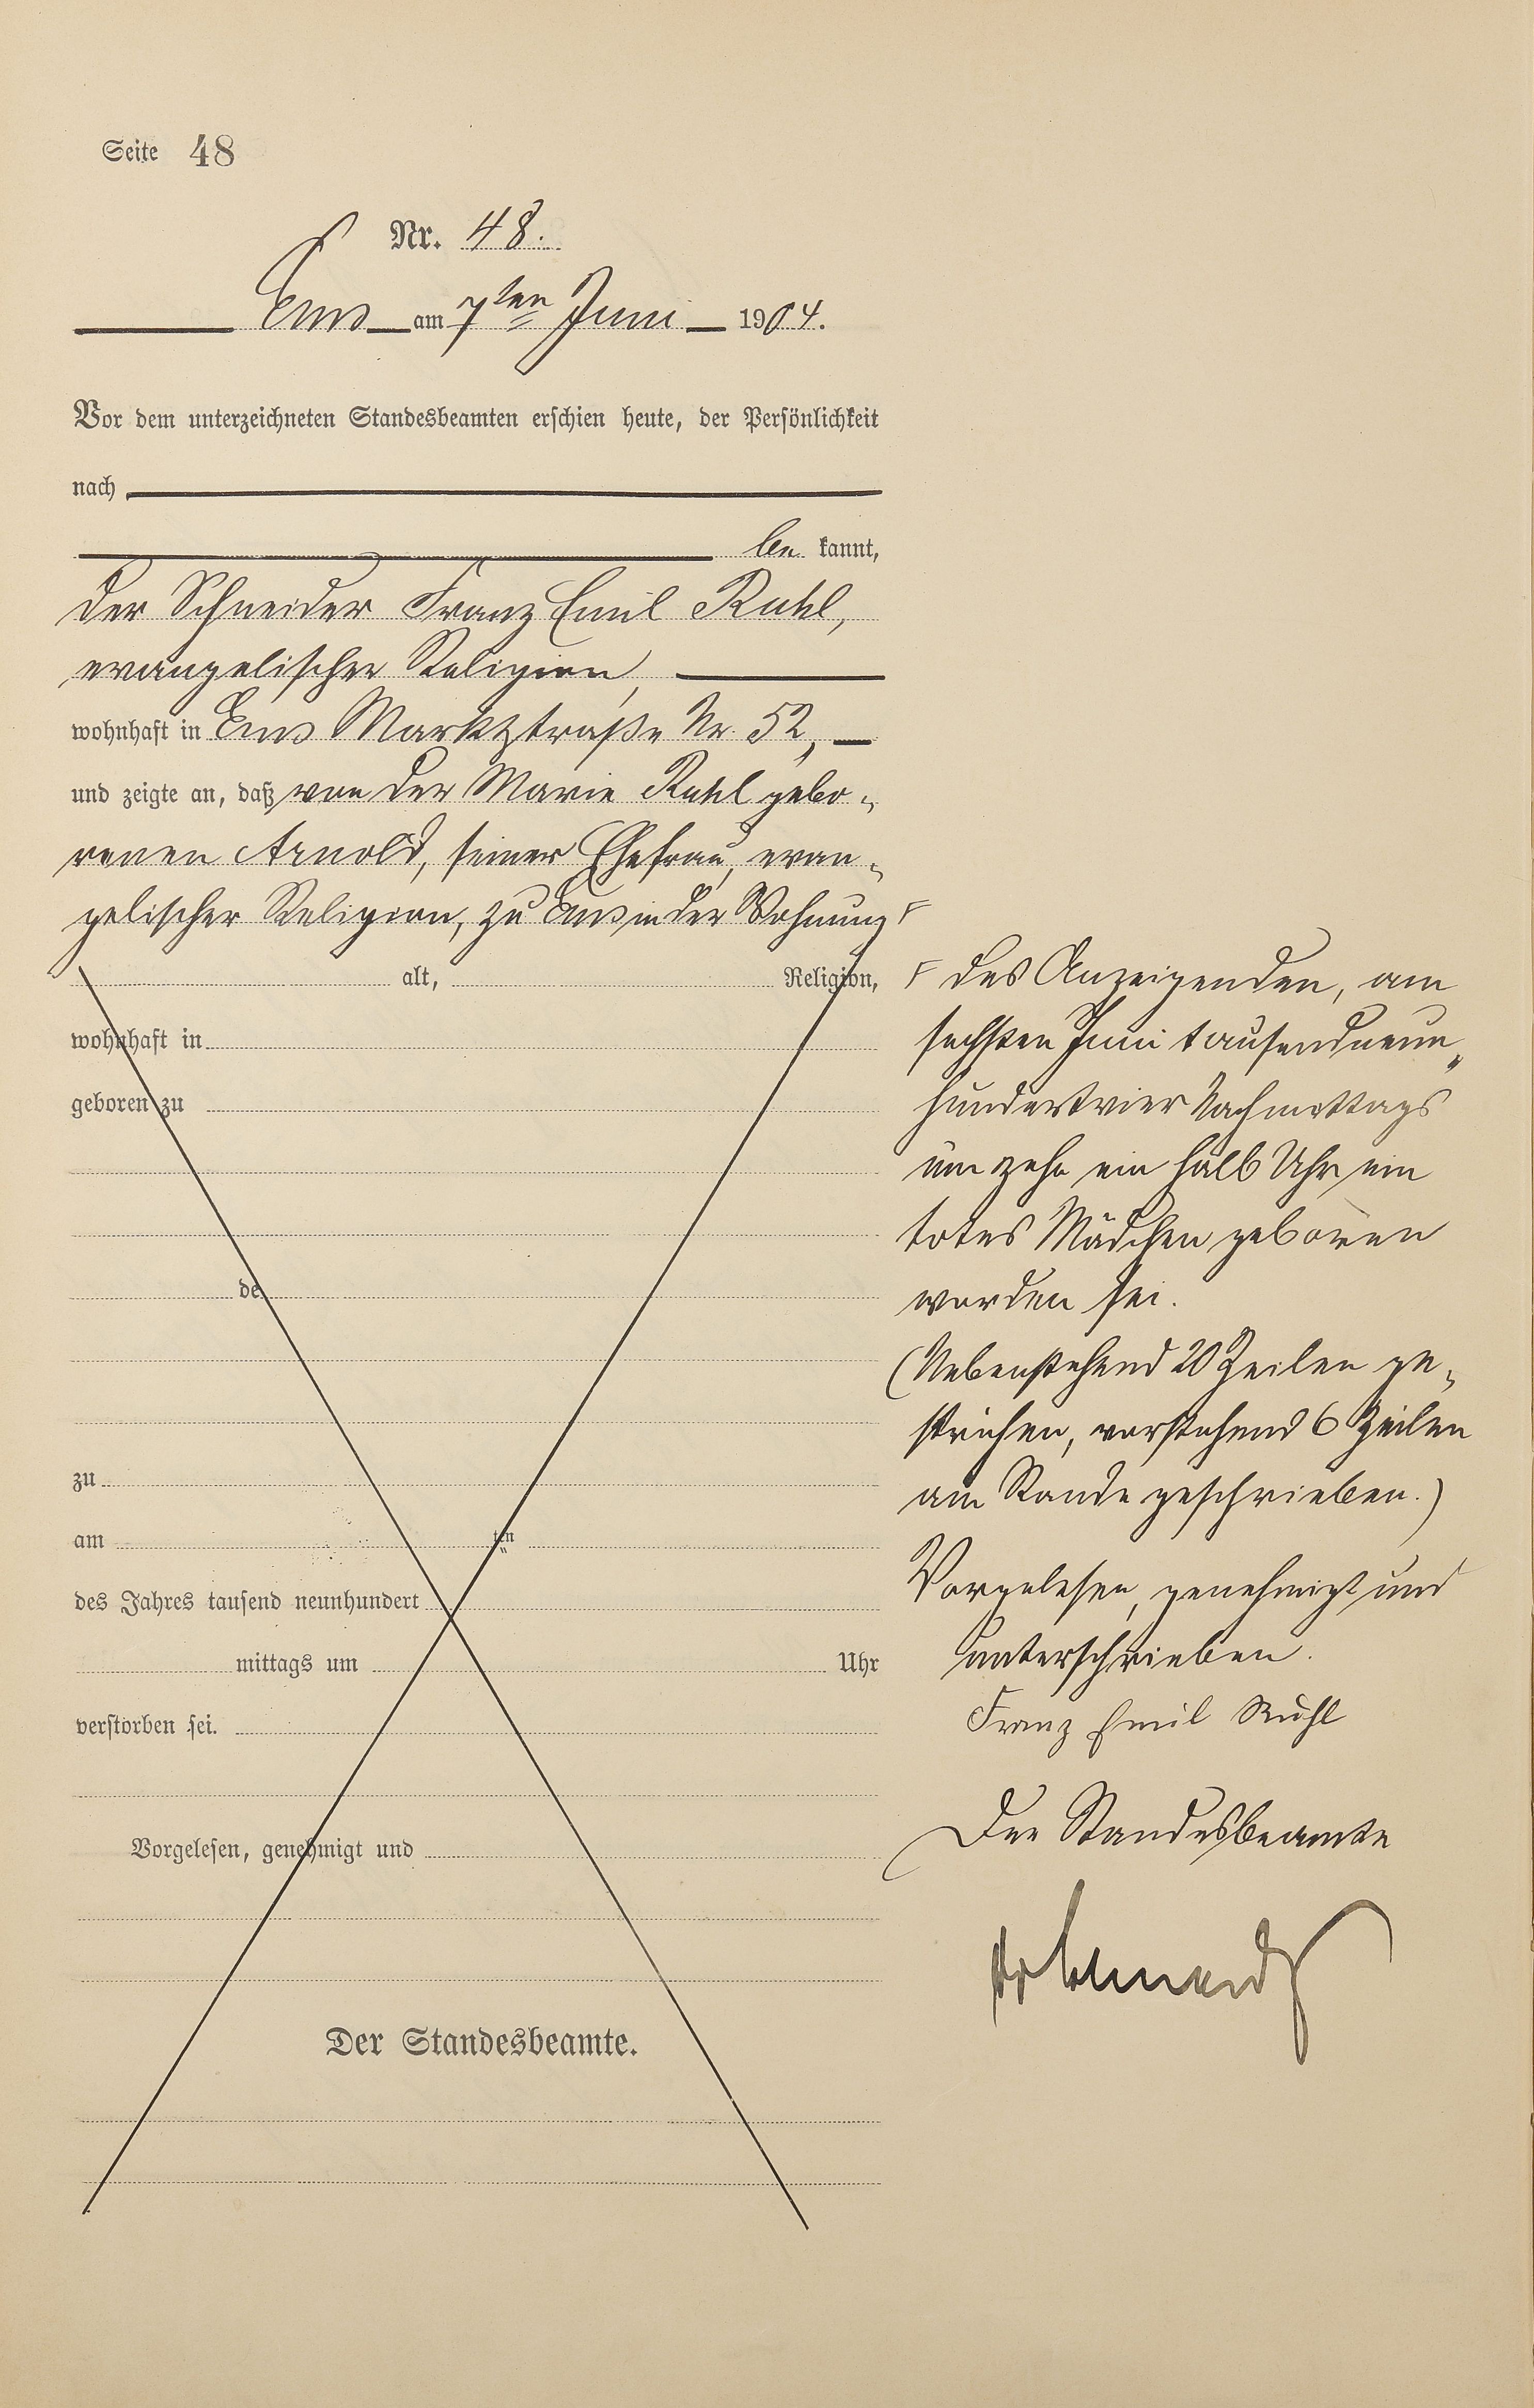 Seite 48
Nr. 48.
Ems am 7ten Juni 1904.
Vor dem unterzeichneten Standesbeamten erschien heute, der Persönlichkeit
nach
be kannt,
der Schneider Franz Emil Ruhl,
evangelischer Religion,
wohnhaft in Ems Marktstraße Nr. 52,
und zeigte an, daß von der Marie Ruhl gebo-
renen Arnold, seiner Ehefrau, evan-
gelischer Religion, zu Ems in der Wohnung
alt, Religion,
wohnhaft in
geboren zu
de
zu
am ten
des Jahres tausend neunhundert
mittags um Uhr
verstorben sei.
Vorgelesen, genehmigt und
Der Standesbeamte.
des Anzeigenden, am
sechsten Juni tausendneun-
hundertvier Nachmittags
um zehn ein halb Uhr ein
totes Mädchen geboren
worden sei.
(Nebenstehend 20 Zeilen ge-
strichen, vorstehend 6 Zeilen
am Rande geschrieben.)
Vorgelesen, genehmigt und
unterschrieben.
Franz Emil Ruhl
Der Standesbeamte